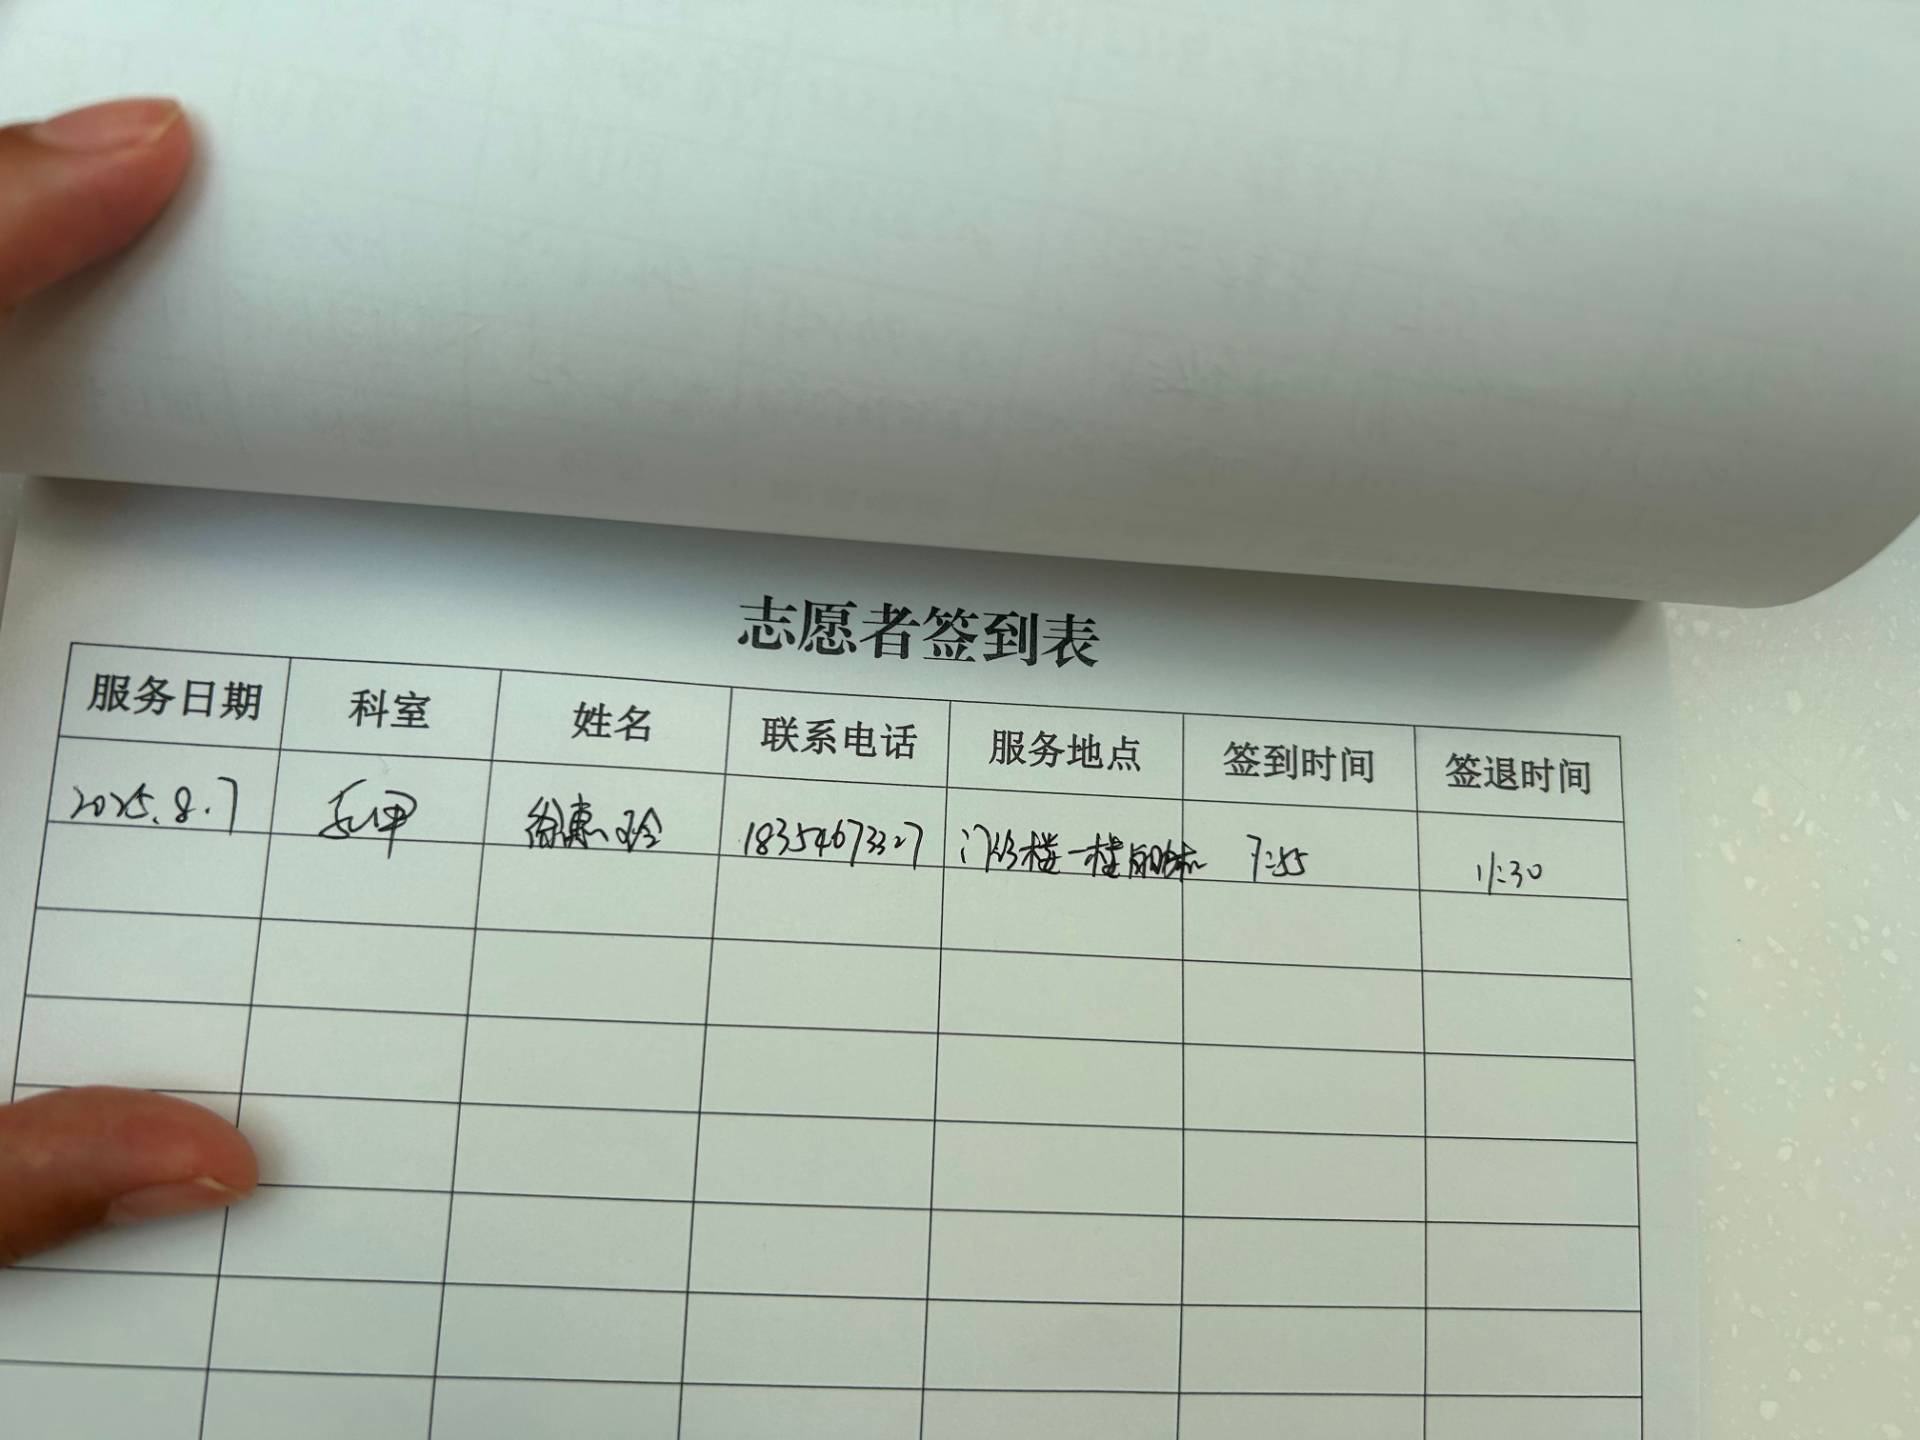 志愿者签到表
服务日期 科室 姓名 联系电话 服务地点 签到时间 签退时间
2025.8.7 乳甲 徐惠玲 18354673327 门诊楼一楼 7:55 11:30